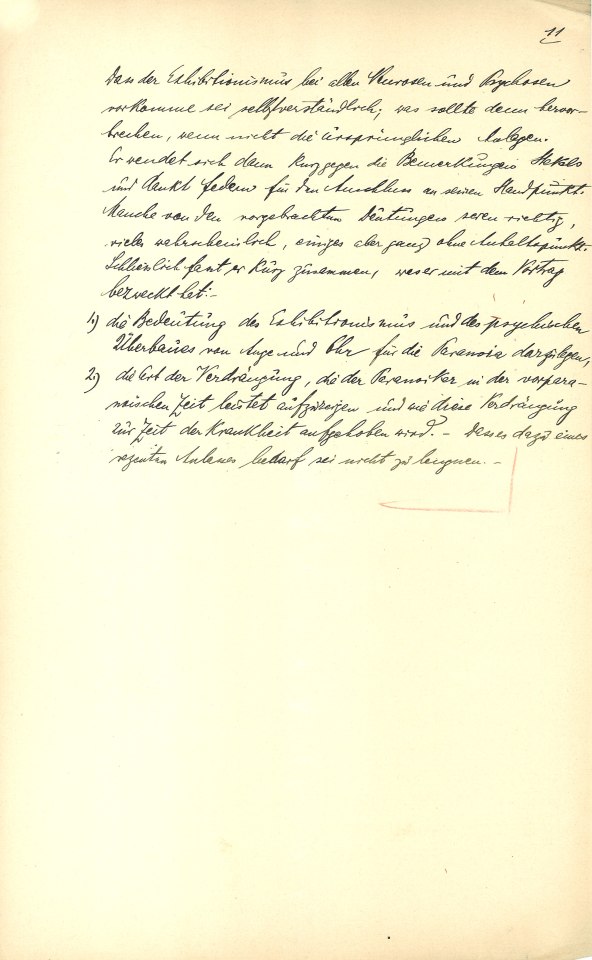 11
Dass der Exhibitionismus bei allen Neurosen und Psychosen
vorkomme sei selbstverständlich; was sollte denn hervor-
brechen, wenn nicht die ursprünglichen Anlagen.
Er wendet sich dann kurz gegen die Bemerkungen Stekels
und dankt Federn für den Anschluss an seinen Standpunkt.
Manche von den vorgebrachten Deutungen seien richtig,
vieles wahrscheinlich, einiges aber ganz ohne Anhaltspunkt.
Schliesslich fasst er kurz zusammen, was er mit dem Vortrag
bezweckt hat:-
1.) die Bedeutung des Exhibitionismus und des psychischen
Überbaues von Auge und Ohr für die Paranoia darzulegen,
2.) die Art der Verdrängung, die der Paranoiker in der vorpara-
noischen Zeit leistet aufzuzeigen und wie diese Verdrängung
zur Zeit der Krankheit aufgehoben wird. - Dass es dazu eines
rezenten Anlasses bedarf sei nicht zu leugnen. -